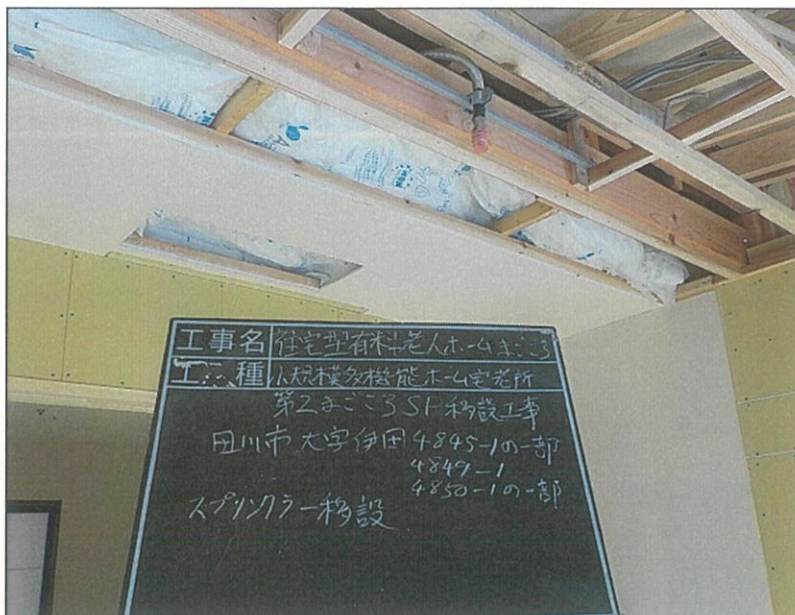 工事名 住宅型有料老人ホームまごころ
工種 小規模多機能ホーム宅老所
第2まごころSP移設工事
田川市大字伊田4845-1の一部
4849-1
4850-1の一部
スプリンクラー移設